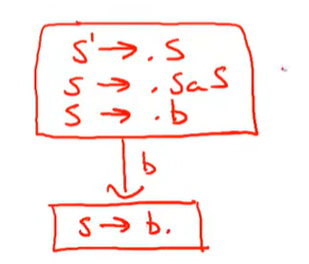 S' → . S
S → . SaS
S → . b
b
S → b.